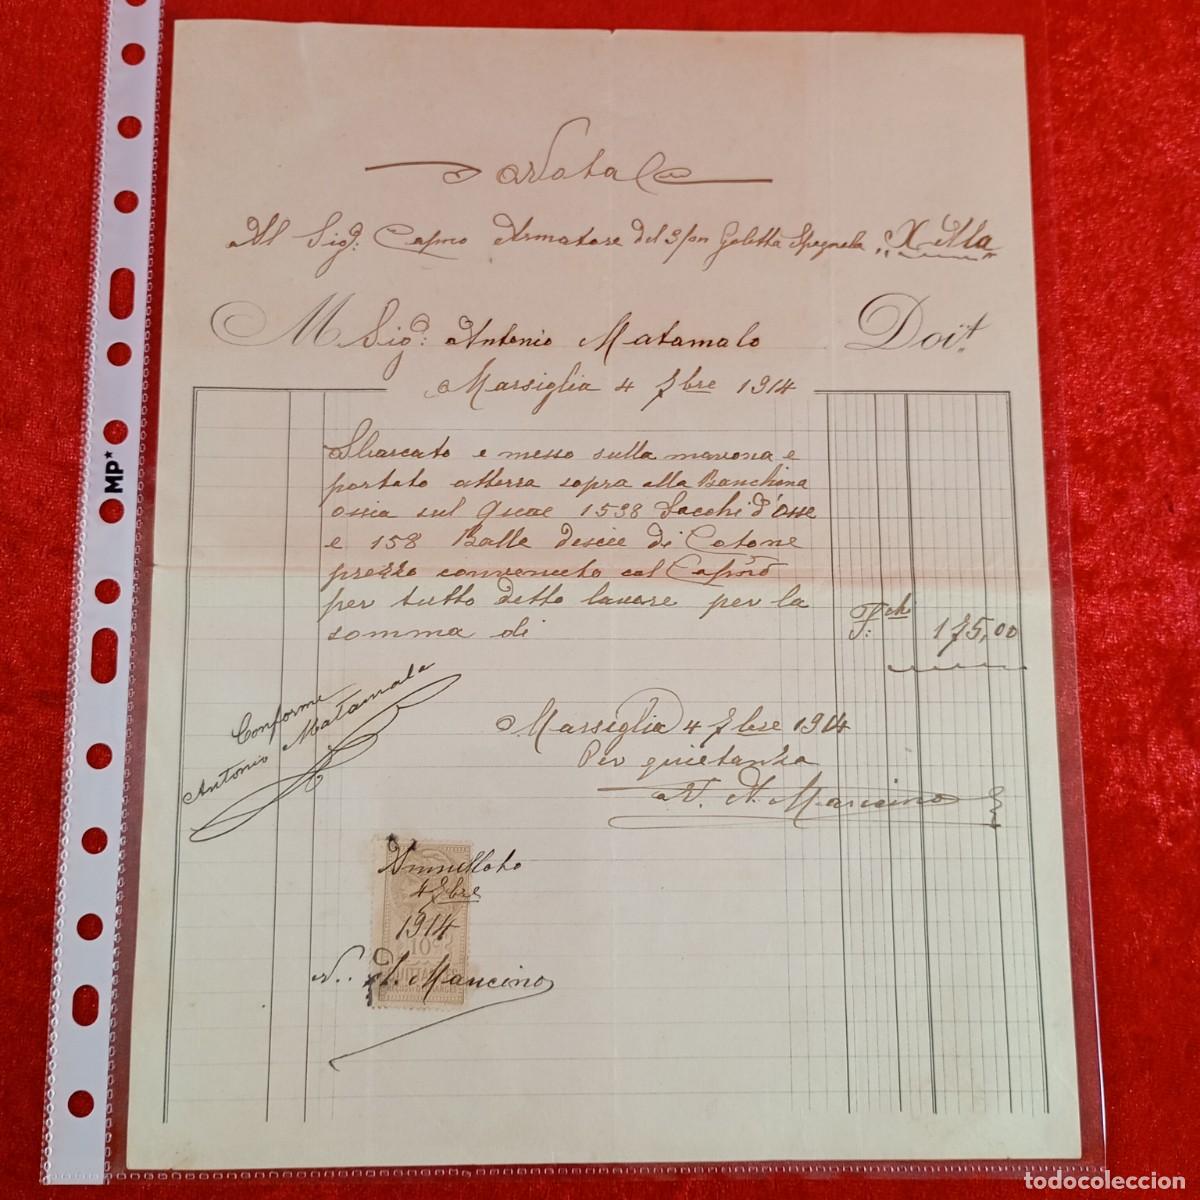 Nota
Al Sig: Armatore del Goletta Spagnola
M Sig: Antonio Matamalo Doit
Marsiglia 4 7bre 1914
Sbarcato e messo sulla maona e
portato atterra sopra alla Banchina
ossia sul Quae 1538 Sacchi d'Osse
e 158 Balle di Cotone
prezzo convenuto col Capno
per tutto detto lavore per la
somma di Fchi: 175,00
Conforme
Antonio Matamala
Marsiglia 4 7bre 1914
Per quietanza
N. A. Mancino
Annullato
4 7bre
1914
10c
QUITTANCES
N. A. Mancino
MP*
todocoleccion